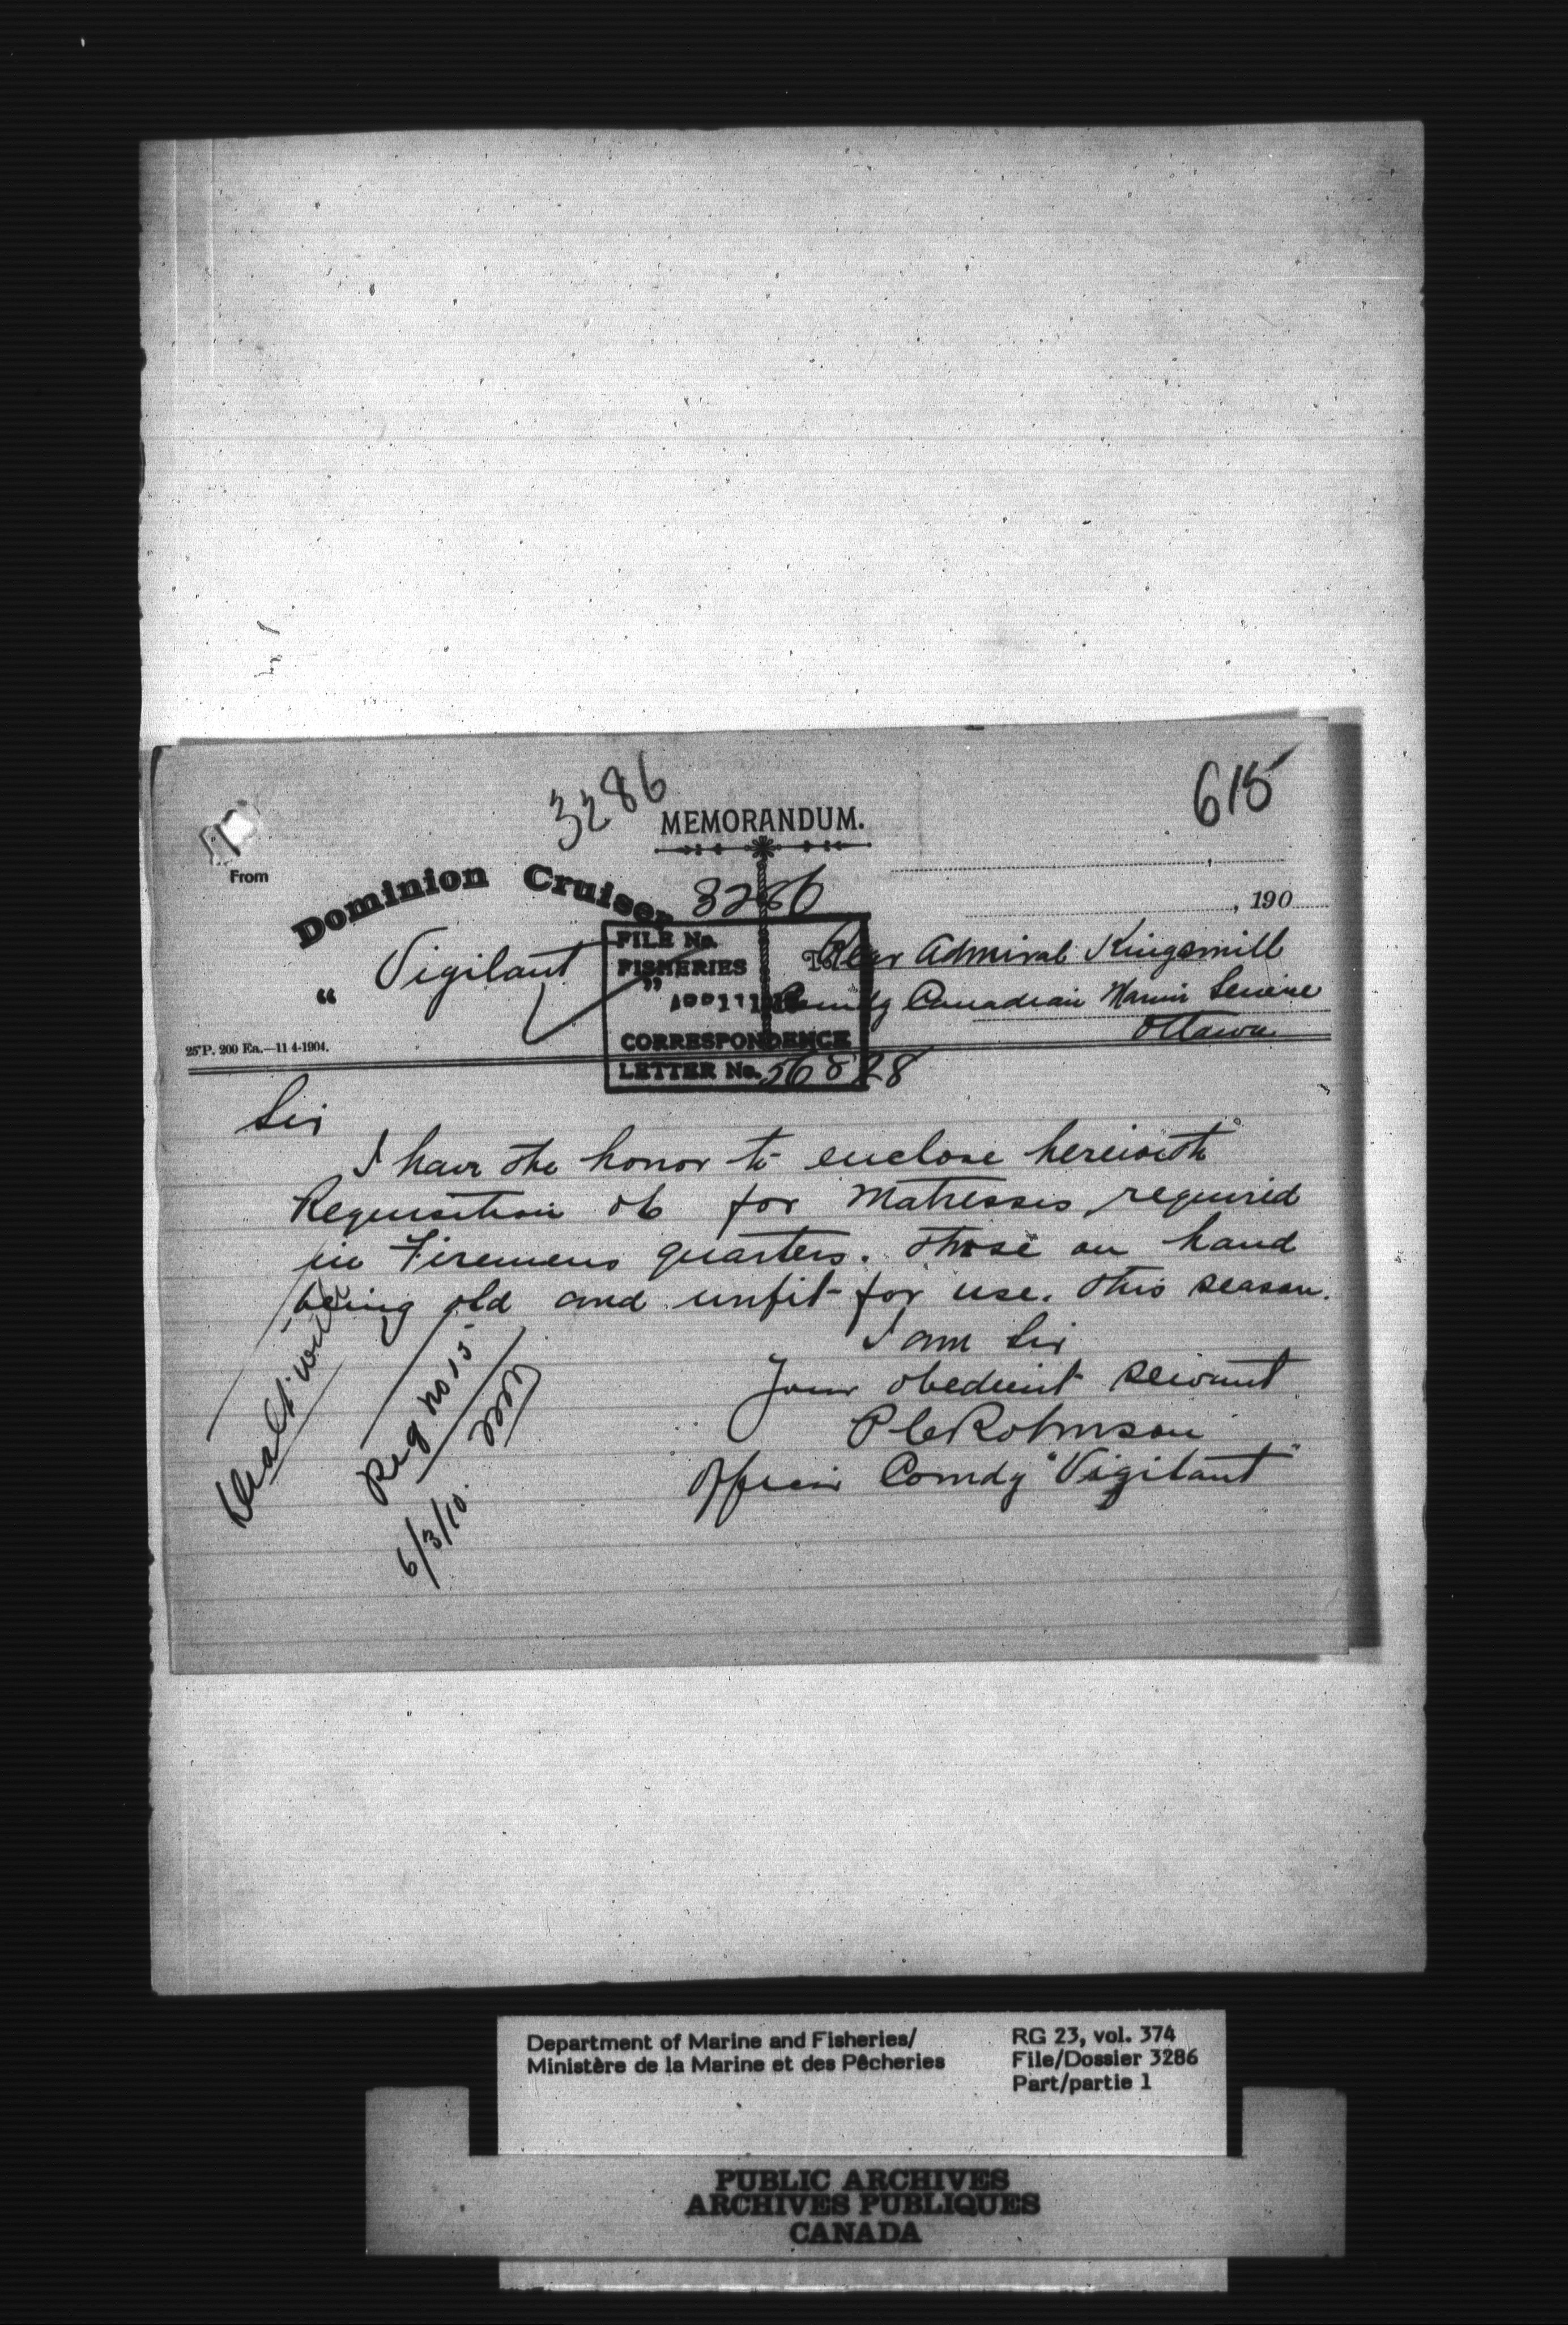 3286
615
MEMORANDUM.
From
Dominion Cruiser
3286
, 190
“ Vigilant ”
FILE No.
FISHERIES
CORRESPONDENCE
LETTER No. 56828
To Rear Admiral Kingsmill
Comdg Canadian Marine Service
Ottawa
25 P. 200 Ea.—11-4-1904.
Sir
I have the honor to enclose herewith
Requisition 06 for Matresses required
in Firemens quarters. Those on hand
being old and unfit for use. this season.
I am Sir
Your obedient servant
P C Robinson
Officer Comdg "Vigilant"
Dealt with
Reg no 15
6/3/10.
Department of Marine and Fisheries/
Ministère de la Marine et des Pêcheries
RG 23, vol. 374
File/Dossier 3286
Part/partie 1
PUBLIC ARCHIVES
ARCHIVES PUBLIQUES
CANADA